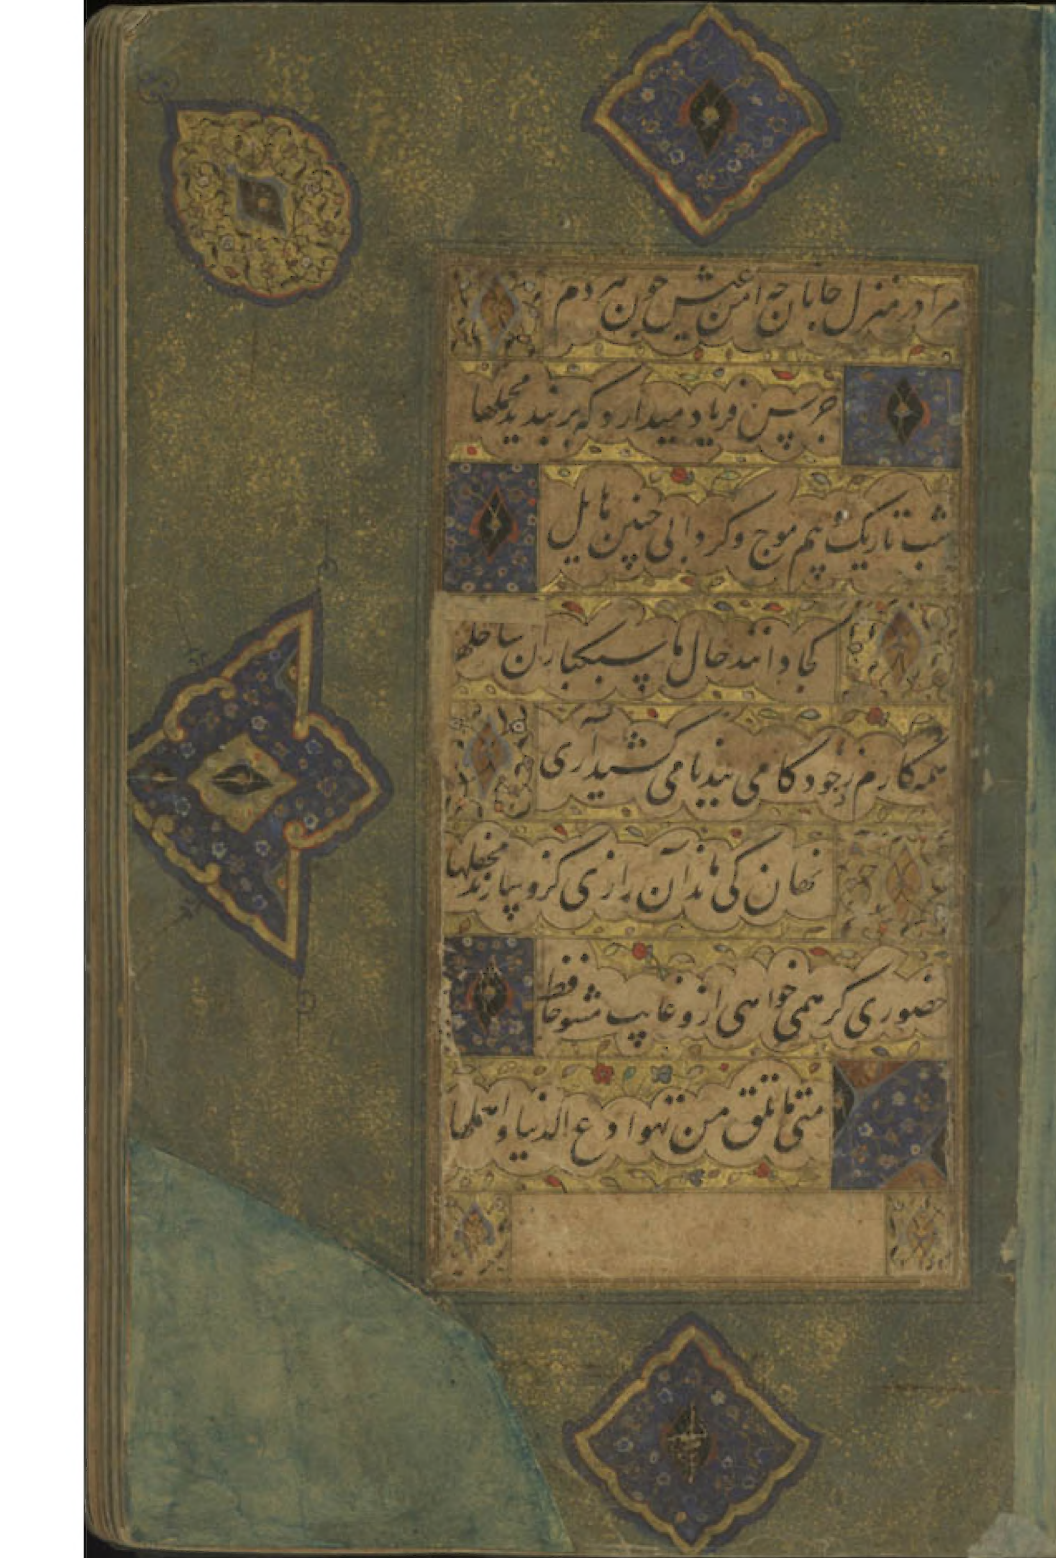 مرا در منزل جانان چه امن عیش چون هر دم
جرس فریاد میدارد که بر بندید محملها
شب تاریک و بیم موج و گردابی چنین هایل
کجا دانند حال ما سبکباران ساحلها
همه کارم ز خود کامی ببدنامی کشید آری
نهان کی ماند آن رازی کزو سازند محفلها
حضوری گر همی خواهی ازو غایب مشو حافظ
متی ما تلق من تهوا دع الدنیا و اهملها